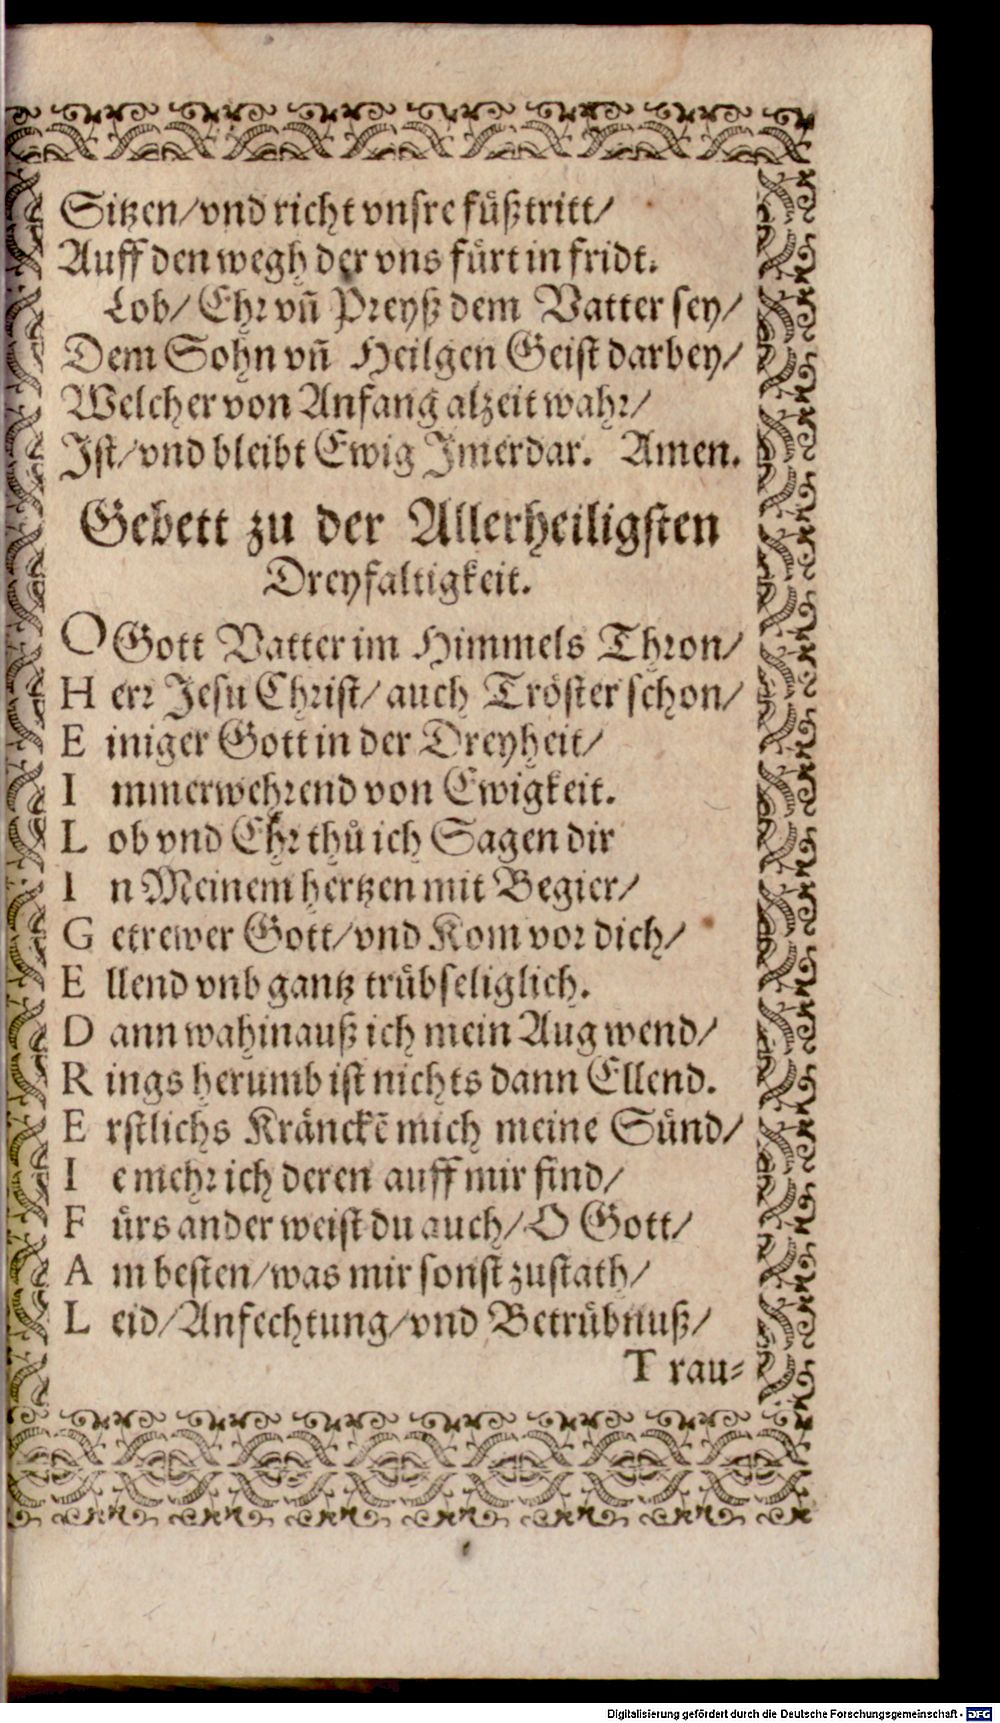 Sitzen/vnd richt vnsre füßtritt/
Auff den wegh der vns fürt in fridt.
Lob/ Ehr vñ Preyß dem Vatter sey/
Dem Sohn vñ Heilgen Geist darbey/
Welcher von Anfang alzeit wahr/
Ist/vnd bleibt Ewig Imerdar. Amen.
Gebett zu der Allerheiligsten
Dreyfaltigkeit.
O Gott Vatter im Himmels Thron/
H err Jesu Christ/ auch Tröster schon/
E iniger Gott in der Dreyheit/
I mmerwehrend von Ewigkeit.
L ob vnd Ehr thů ich Sagen dir
I n Meinem hertzen mit Begier/
G etrewer Gott/vnd Kom vor dich/
E llend vnb gantz trübseliglich.
D ann wahinauß ich mein Aug wend/
R ings herumb ist nichts dann Ellend.
E rstlichs Kränckẽ mich meine Sünd/
I e mehr ich deren auff mir find/
F ürs ander weist du auch/ O Gott/
A m besten/was mir sonst zustath/
L eid/Anfechtung/vnd Betrübnuß/
T rau-
Digitalisierung gefördert durch die Deutsche Forschungsgemeinschaft - DFG